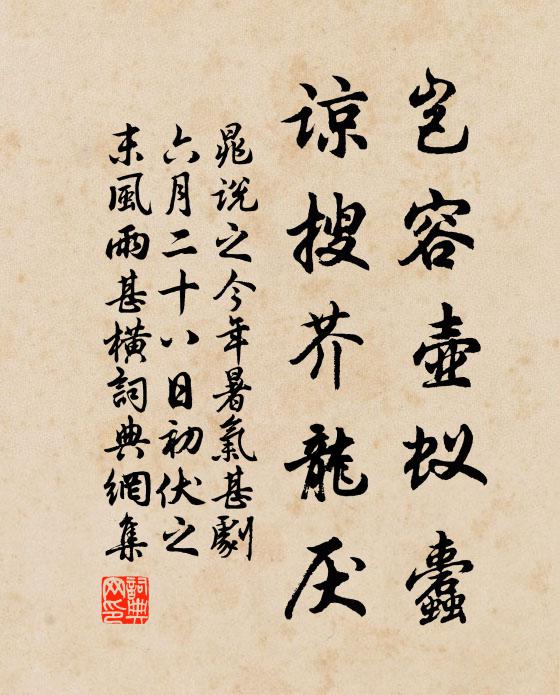 岂容壺蚁蠹
諒搜芥龍厌
晁說之今年暑氣甚劇
六月二十八日初伏之
末風雨甚橫詞典網集
詞典网印